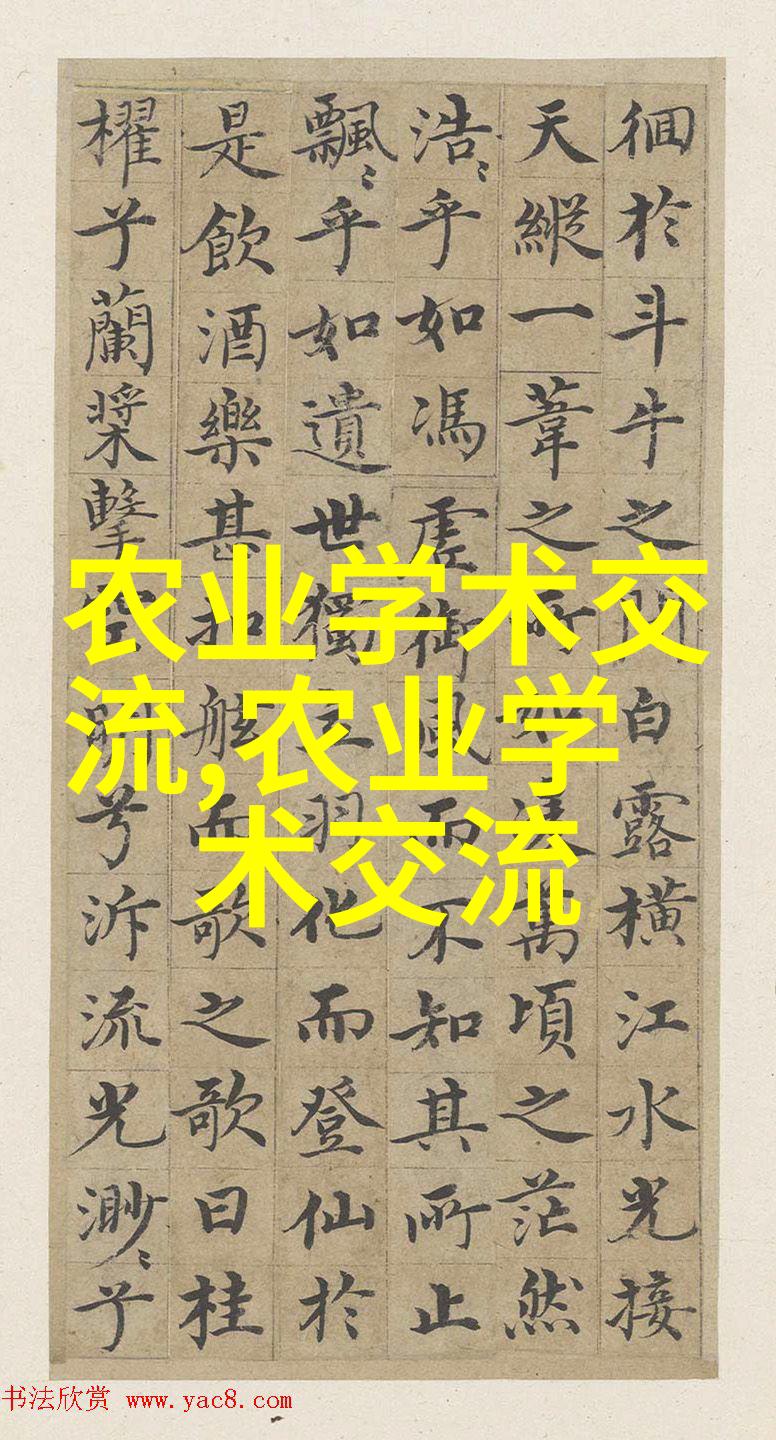 徊於斗牛之間白露橫江水光接
天縱一葦之所如凌萬頃之茫然
浩〻乎如馮虛御風而不知其所止
飄〻乎如遺世獨立羽化而登仙於
是飲酒樂甚扣舷而歌之歌曰桂
櫂兮蘭槳擊空明兮泝流光渺〻兮
农业学术交
流,农业学
术交流
书法欣赏 www.yac8.com